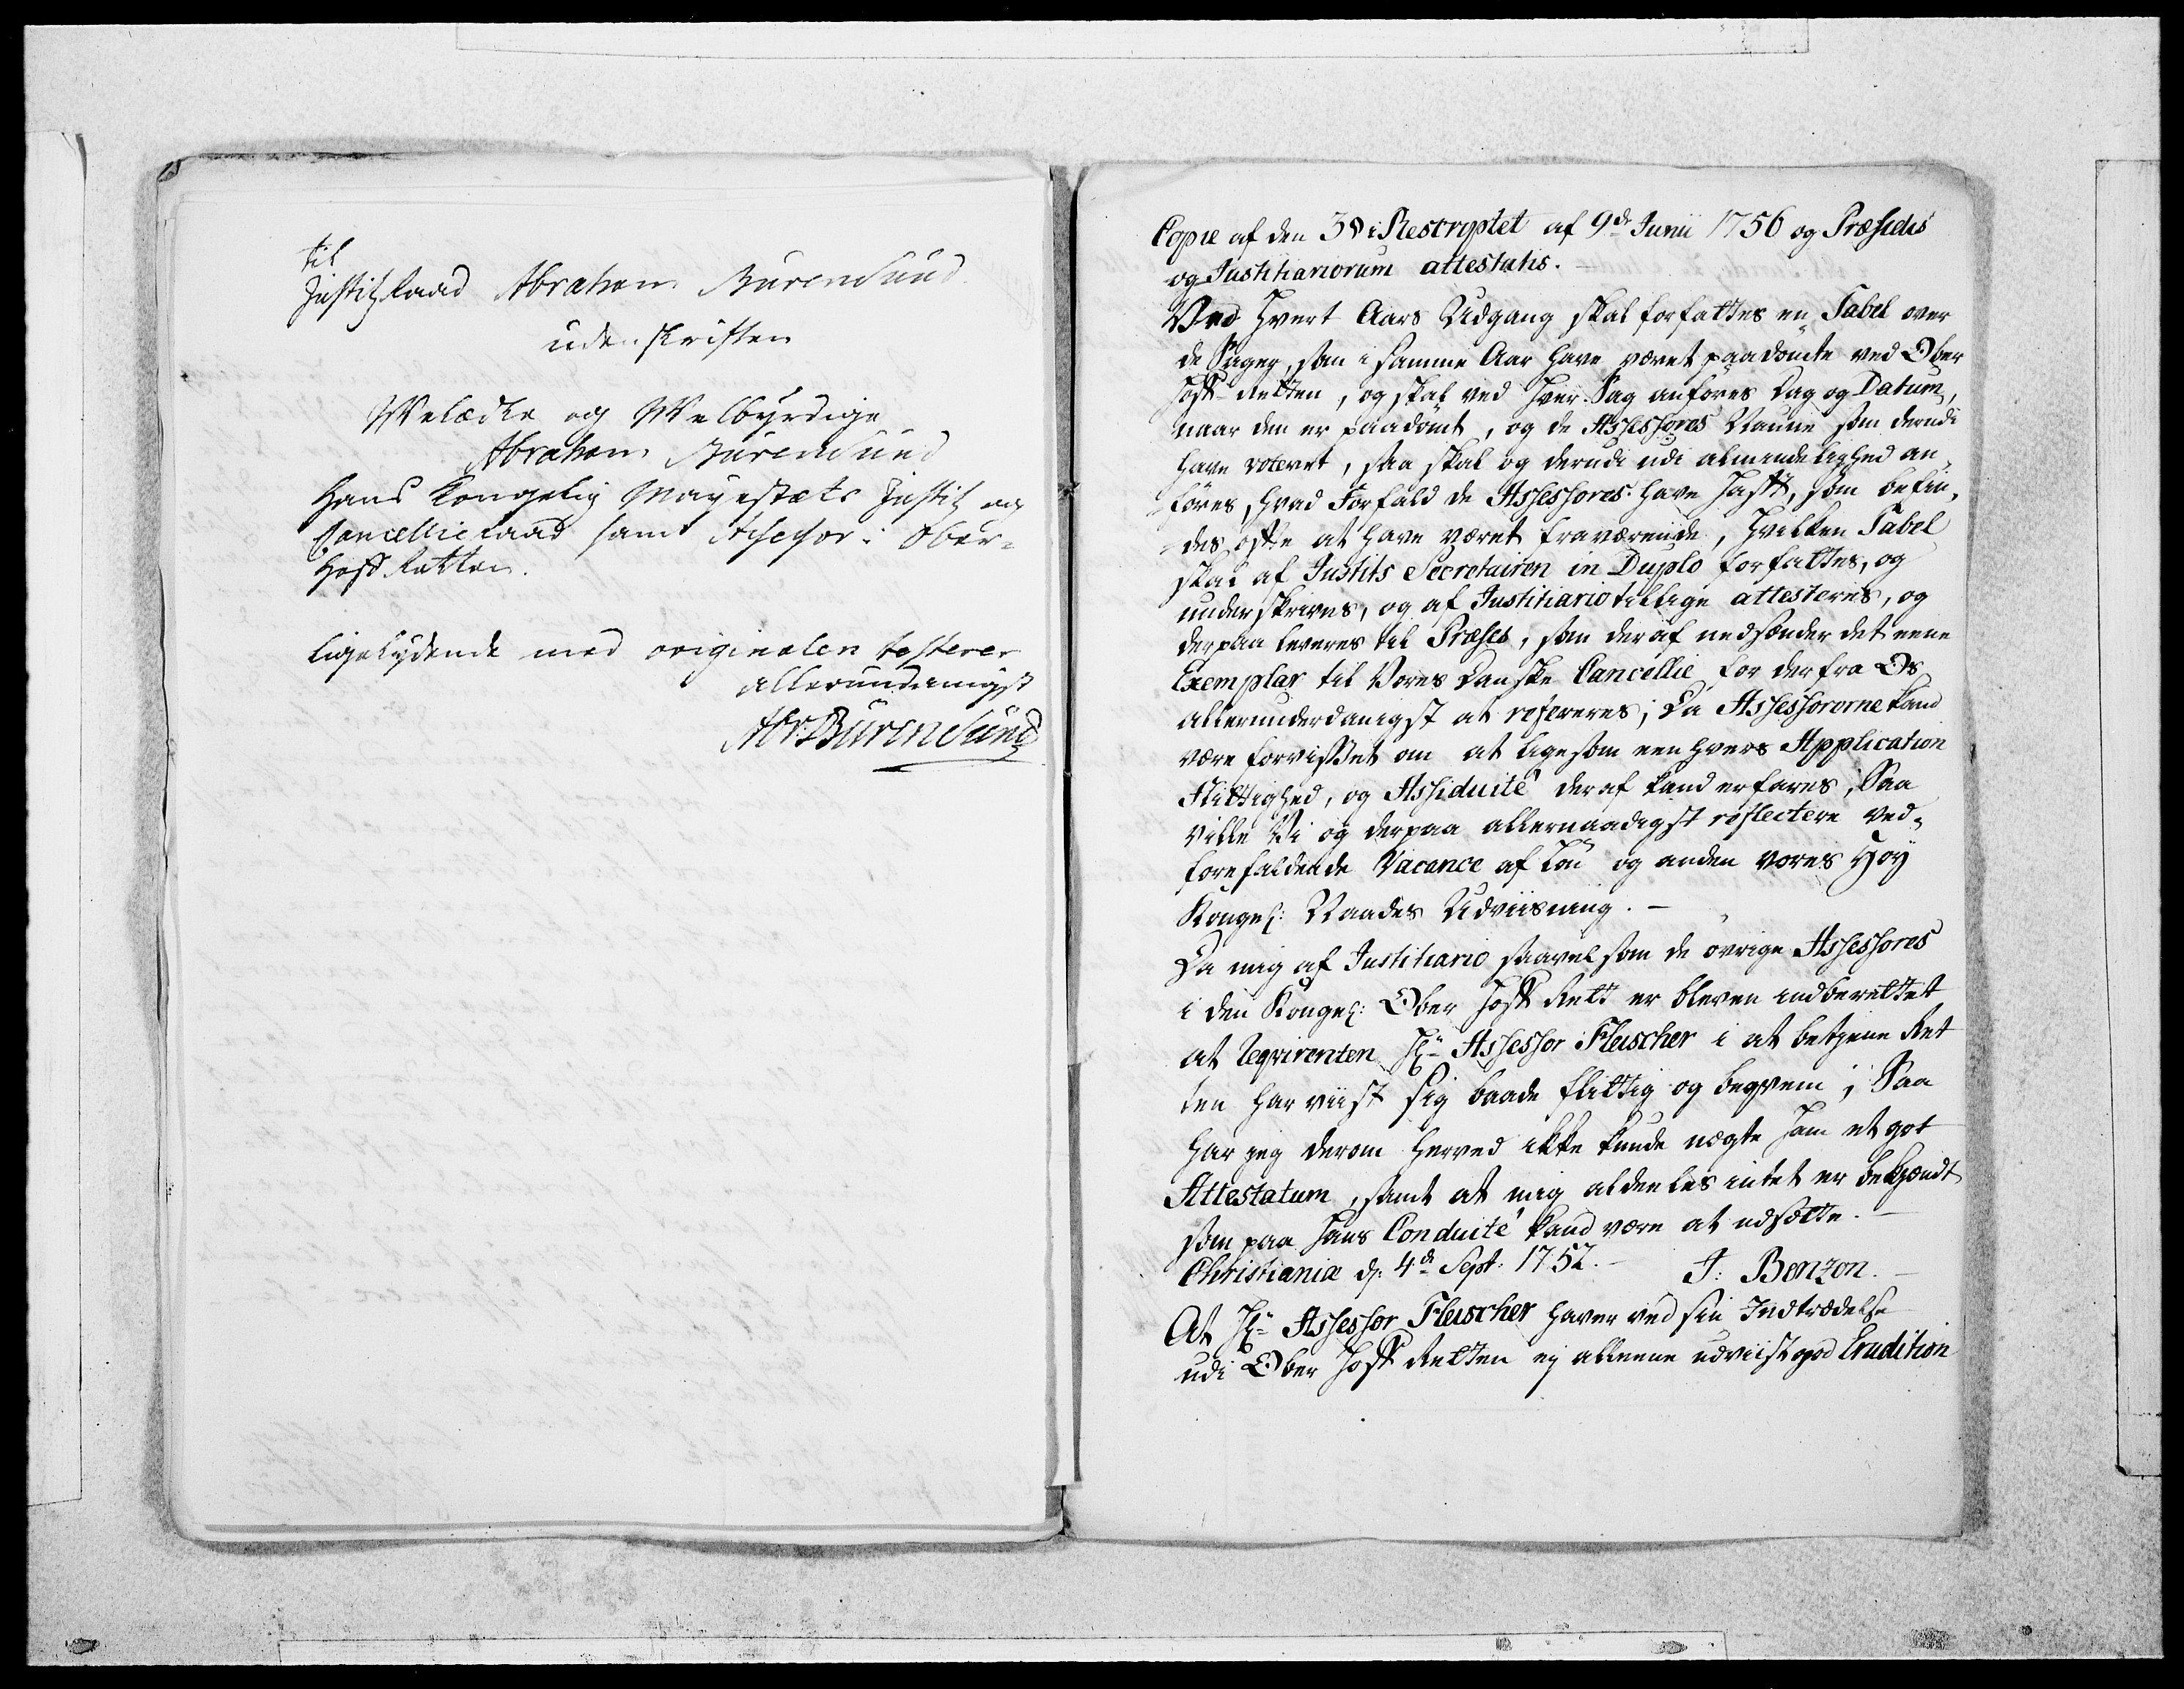 til
Justitzraad Abraham Burensund
uden skriften
Welædle og Welbyrdige
Abraham Burensund
Hans Kongelig Mayestæts Justitz og
Cancellieraad samt Assessor i Ober-
Hoff Retten.
Ligelydende med originalen testerer
allerunderdanigst
Abr: Burensund
Copie af den 3 § i Rescriptet af 9de Junii 1756 og Præsidis
og Justitiariorum attestatis. —
Ved hvert Aars Udgang skal forfattes en Tabel over
de Sager, som i samme Aar have været paadømte ved Ober
Hoff-Retten, og skal ved hver Sag anføres Dag og Datum,
naar den er paadømt, og de Assessores Navne som derudi
have voteret, saa skal og derudi udi almindelighed an-
føres, hvad Forfald de Assessores have hafft, som befin-
des offte at have været fraværende, hvilken Tabel
skal af Justits Secretairen in Duplo forfattes, og
underskrives, og af Justitiario tillige attesteres, og
derpaa leveres til Præses, som deraf nedsender det eene
Exemplar til Vores Danske Cancellie, for derfra Os
allerunderdanigst at refereres; Da Assessorerne kand
være forvisset om at ligesom een hvers Application
Flittighed, og Assiduité deraf kand erfares, Saa
ville Vi og derpaa allernaadigst reflectere ved-
forefaldende Vacance af Løn og anden vores Høy
Kongel: Naades Udviisning. —
Da mig af Justitiario saavelsom de øvrige Assessores
i den Kongel: Ober Hoff Rett er bleven indberettet
at reqvirenten Hr Assessor Fleischer i at betjene Ret
ten har viist sig baade flittig og beqvem; Saa
har jeg derom herved ikke kunde nægte ham et got
Attestatum, samt at mig aldeeles intet er bekjendt
som paa hans Conduité kand være at udsætte. —
Christiania d: 4de Sept. 1752. — J: Benzon. —
At Hr Assessor Fleischer haver ved sin Indtrædelse
udi Ober Hoff Retten ej alleene udviist god Erudition